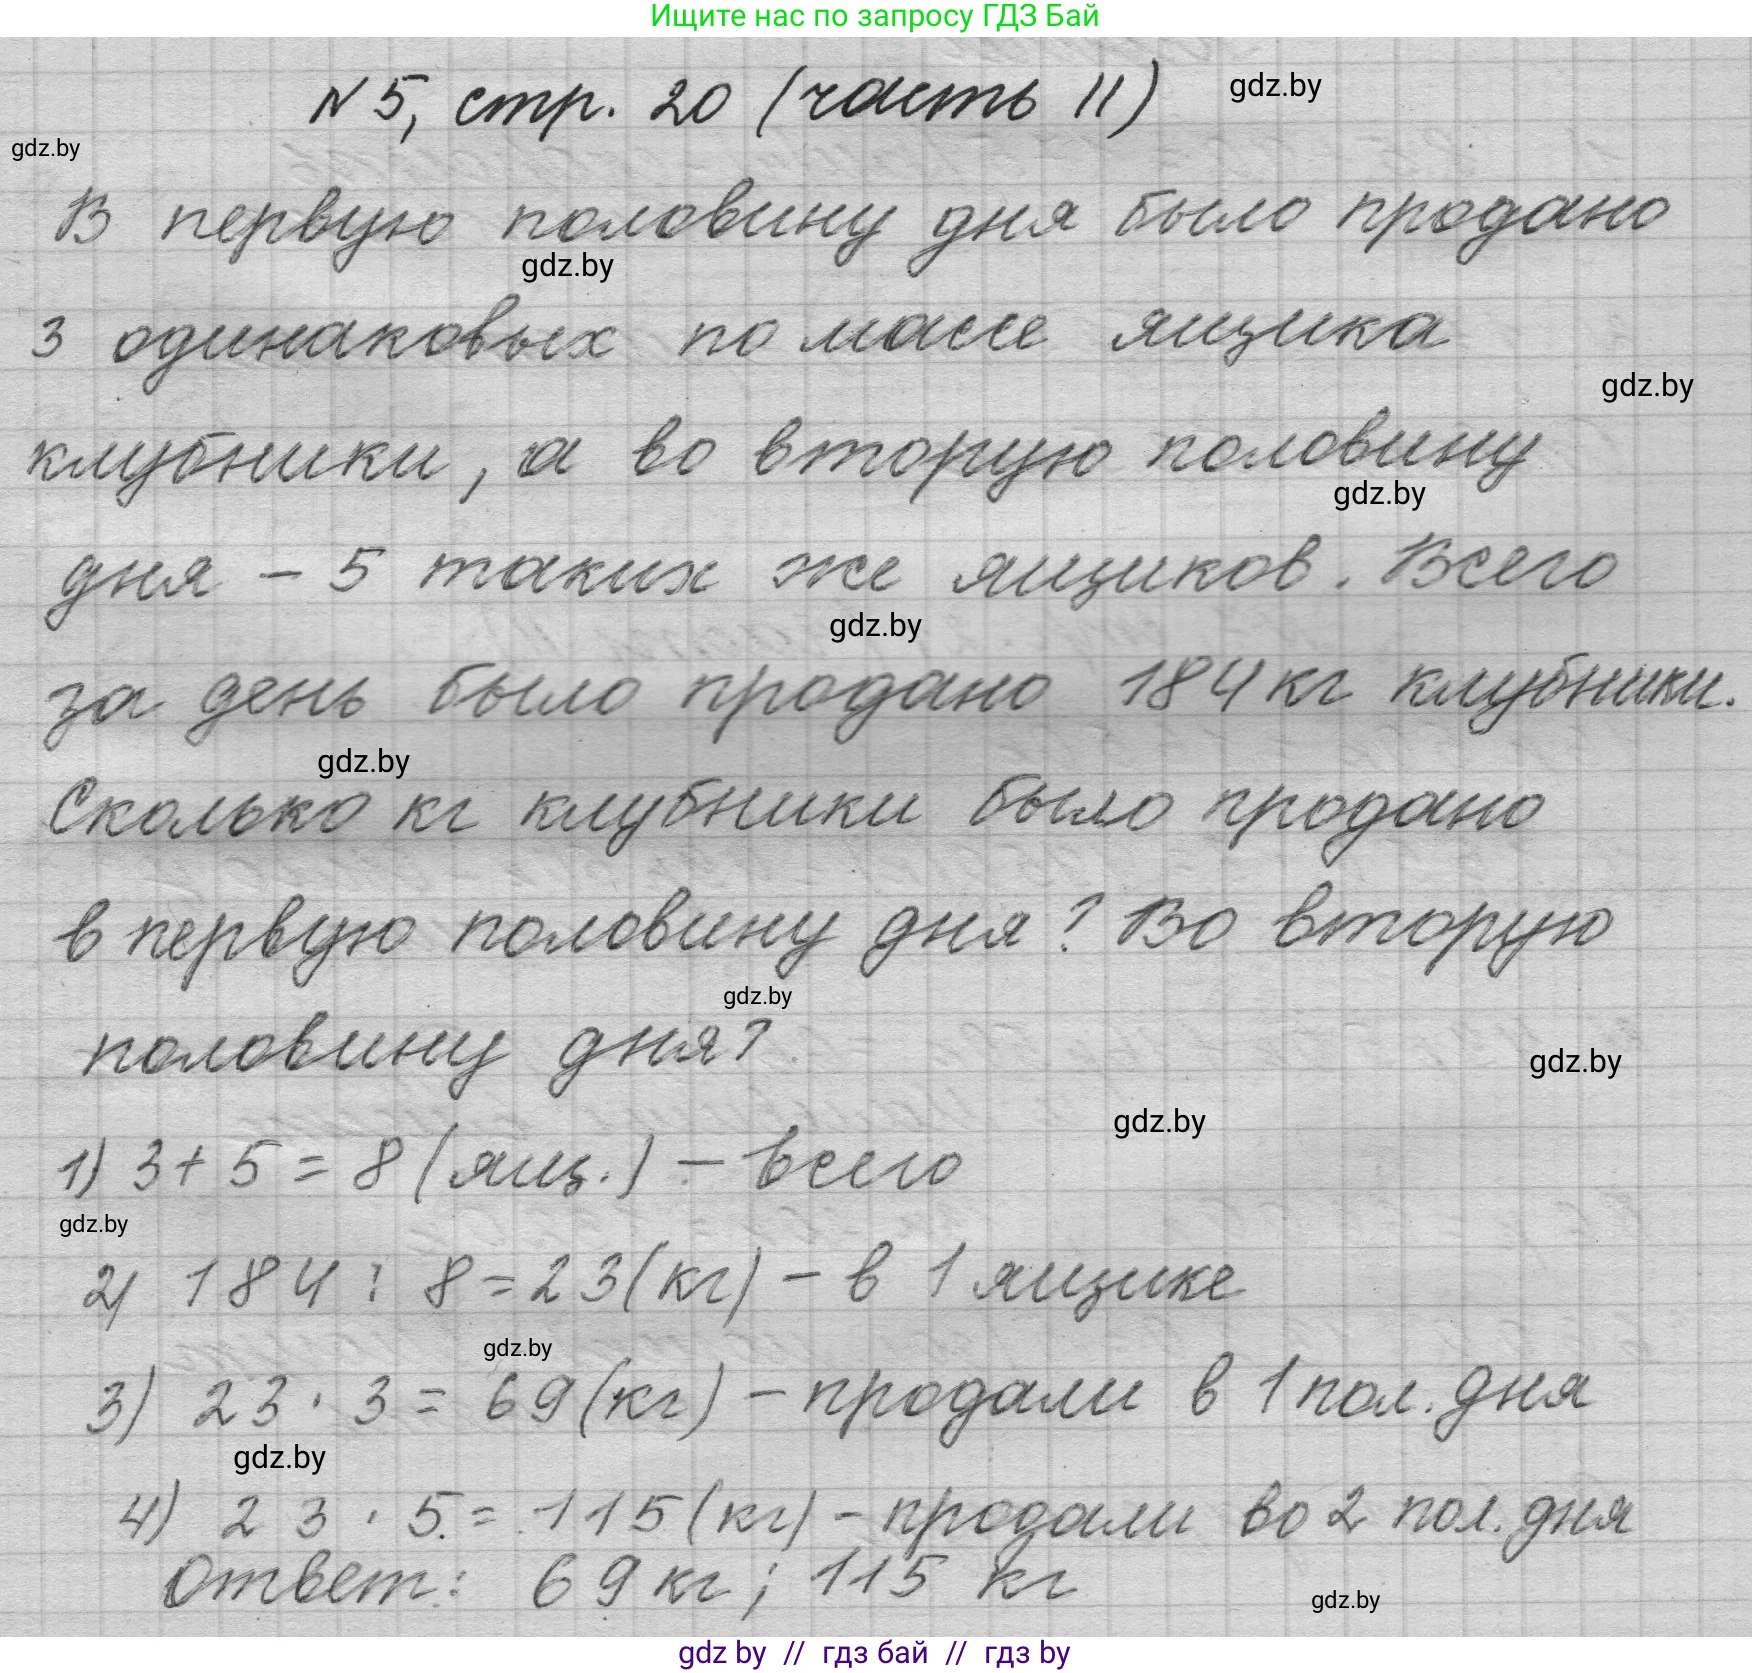 Ищите нас по запросу ГДЗ Бай
N 5, стр. 20 (часть II)
gdz.by
gdz.by
В первую половину дня было продано
gdz.by
3 одинаковых по массе ящика
gdz.by
клубники, а во вторую половину
gdz.by
дня – 5 таких же ящиков. Всего
gdz.by
за день было продано 184 кг клубники.
gdz.by
Сколько кг клубники было продано
в первую половину дня? Во вторую
gdz.by
половину дня?
gdz.by
gdz.by
1) 3 + 5 = 8 (ящ.) – всего
gdz.by
2) 184 : 8 = 23 (кг) – в 1 ящике
gdz.by
3) 23 · 3 = 69 (кг) – продали в 1 пол. дня
gdz.by
4) 23 · 5 = 115 (кг) – продали во 2 пол. дня
Ответ: 69 кг; 115 кг
gdz.by
gdz by // гдз бай // gdz by